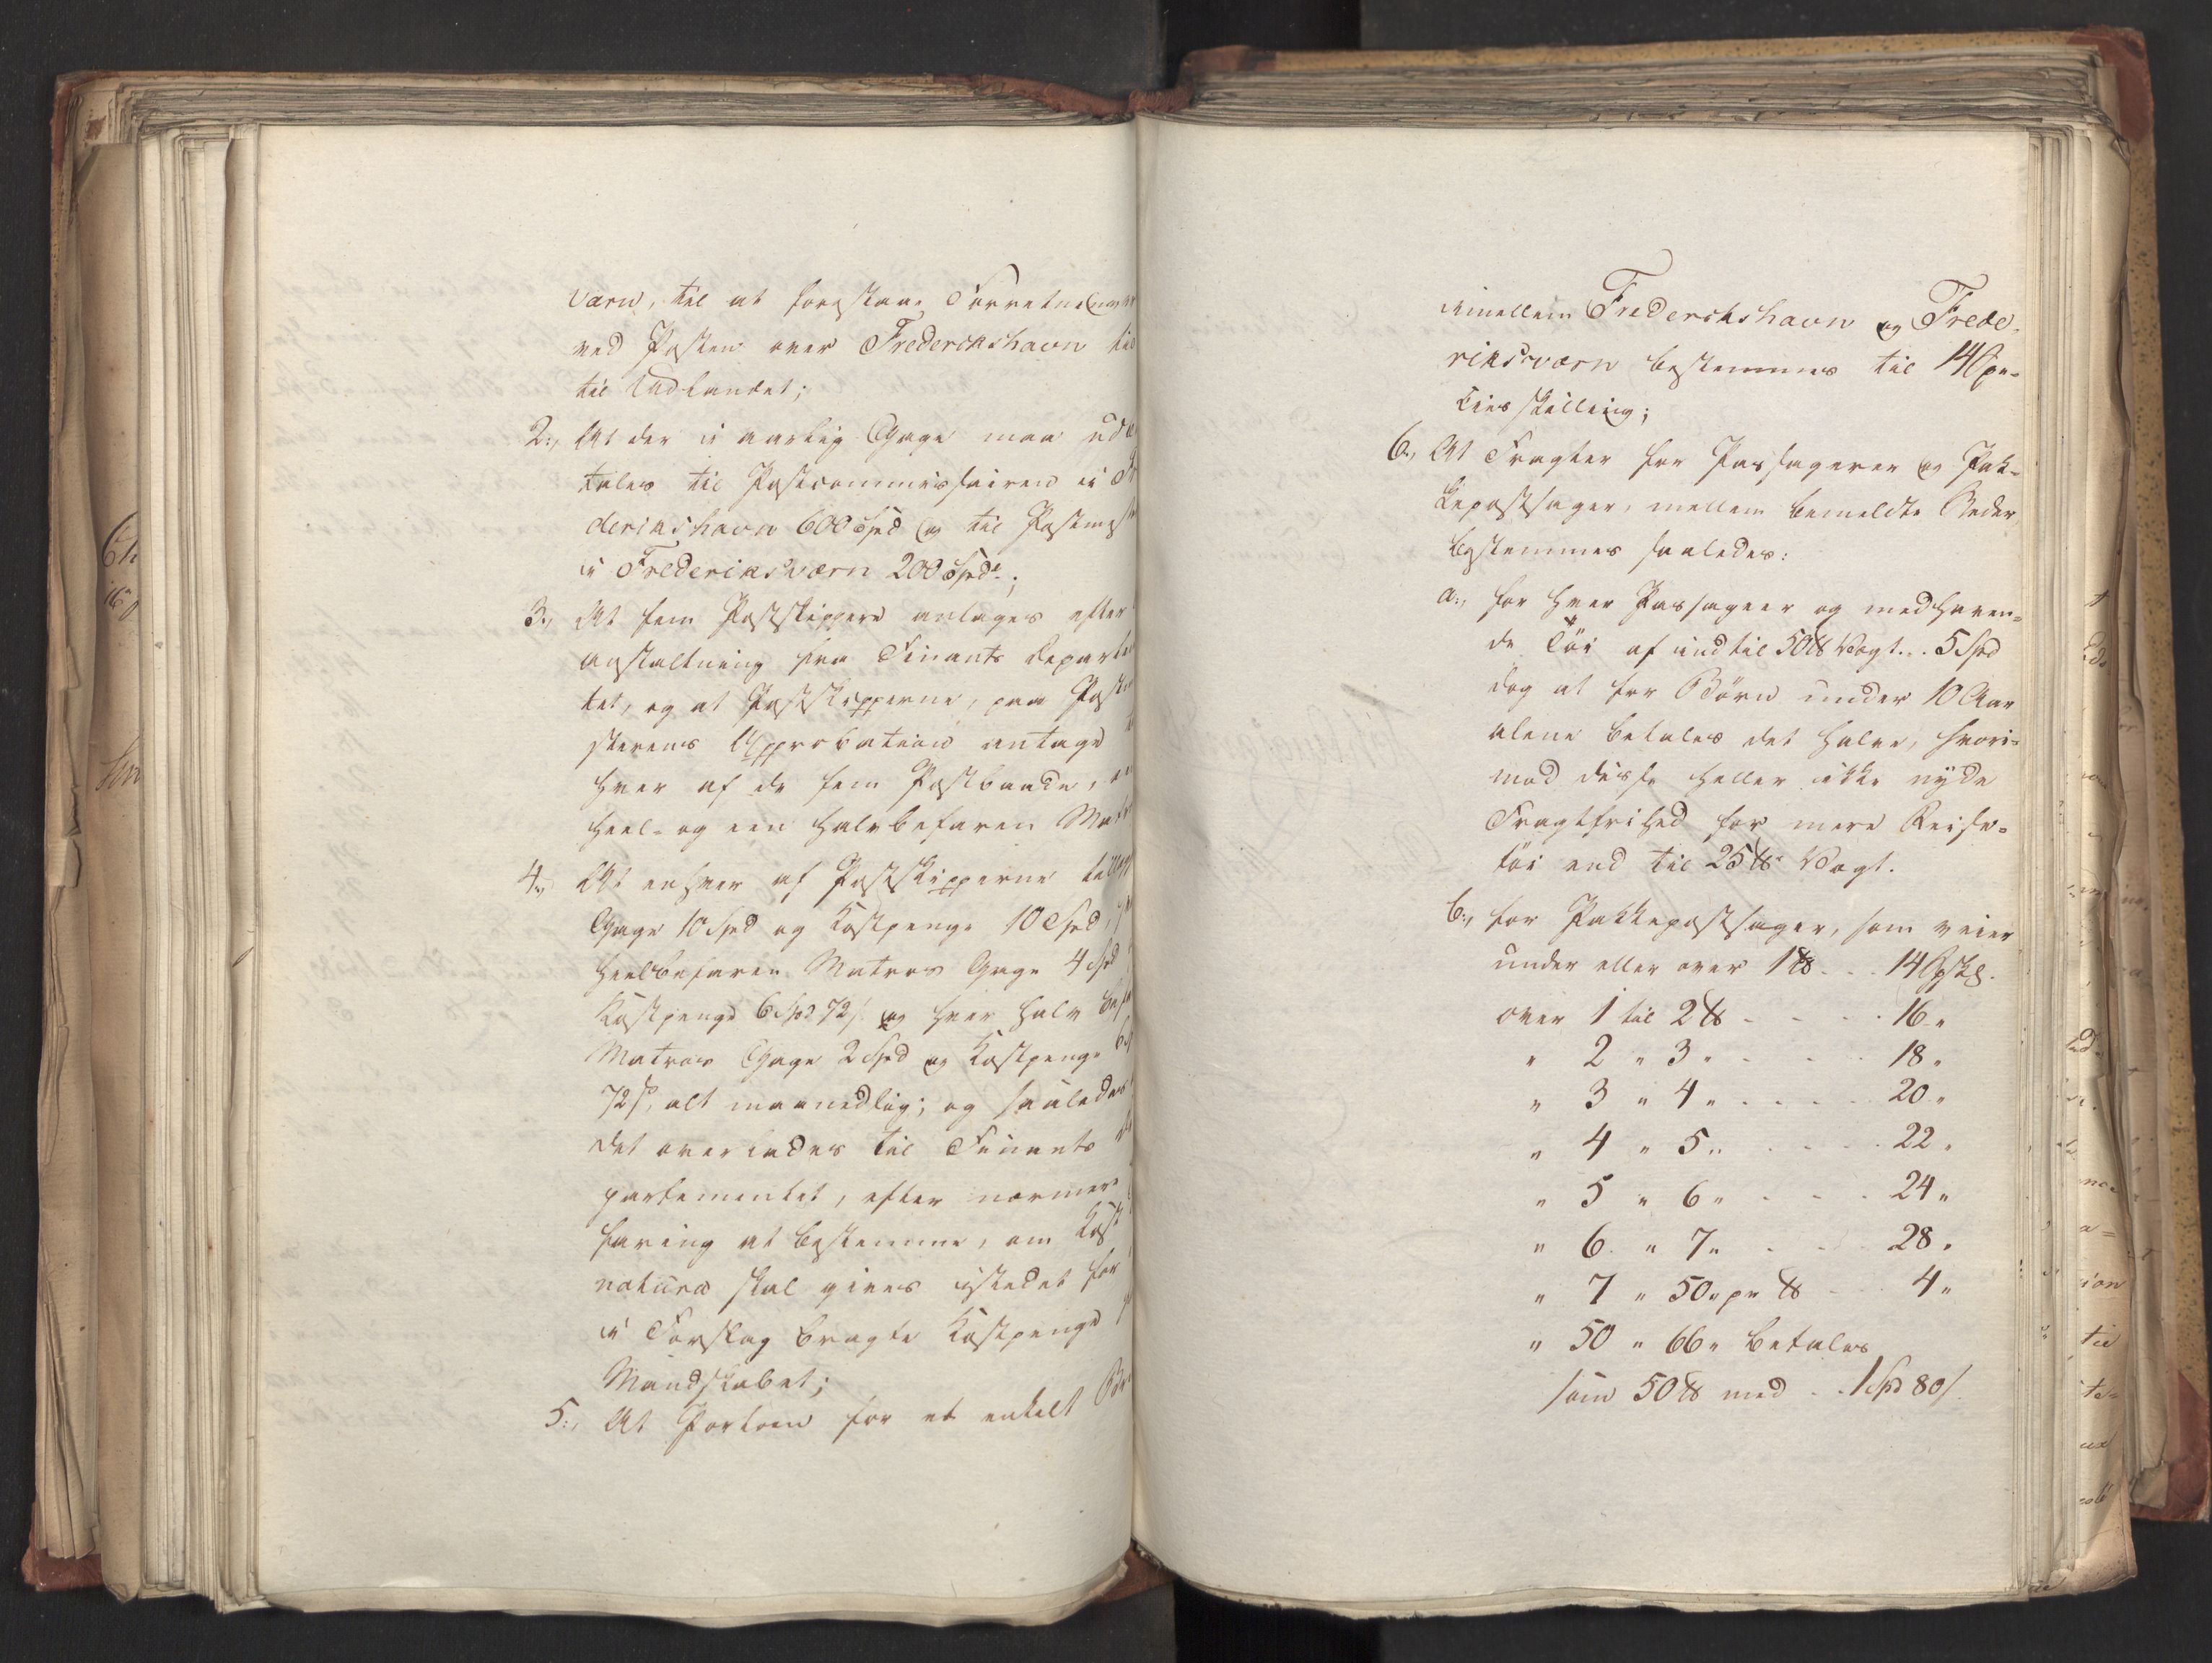 værn, til at forestaae Forretninger
ved Posten over Frederikshavn til
til Udlandet;
2., At der i aarlig Gage maa udbe
tales til Postcommissairen i Fr
derikshavn 600 Spd og til Postmest
i Frederiksværn 200 Spd.;
3., At fem Postskippere antages efter
anstaltning fra Finants Departem
tet, og at Postskipperne, paa Postm
sterens Approbation antage
hver af de fem Postbaade, en
heel- og een halvbefaren Matr
4., At enhver af Postskipperne tillægg
Gage 10 Spd og Kostpenge 10 Spd,
heelbefaren Matros Gage 4 Spd
Kostpenge 6 Spd 72 s. og hver halv befa
Matros Gage 2 Spd og Kostpenge 6 S
72 s, alt maanedlig; og saaledes
det overlades til Finants
partementet, efter nærmere
faring at bestemme, om Kost
natura skal gives istedet for
i Forslag bragte Kostpenge
Mandskabet;
5., At Portoen for et enkelt Br
imellem Frederikshavn og Frede-
riksværn bestemmes til 14 Spe-
cies skilling;
6., At Fragten for Passagerer og Pak-
kepostsager, mellem bemeldte Steder,
bestemmes saaledes:
a., for hver Passageer og medhaven-
de Töi af indtil 50 ℔ Vægt... 5 Spd
dog at for Börn under 10 Aar
alene betales det halve, hvori-
mod disse heller ikke nyde
Fragtfrihed for mere Reise-
töi end til 25 ℔ Vægt.
b., for Pakkepostsager, som veier
under eller over 1 ℔ . . . 14 Spskl.
over 1 til 2 ℔ - - - - 16 "
" 2 " 3 " - - - 18 "
" 3 " 4 " . . . . . 20 "
" 4 " 5 " . - - - - 22 "
" 5 " 6 " - - - 24 "
" 6 " 7 " . - - 28 "
" 7 " 50 " pr ℔ - - 4 "
" 50 " 66 " betales
som 50 ℔ med . . 1 Spd 80 s.